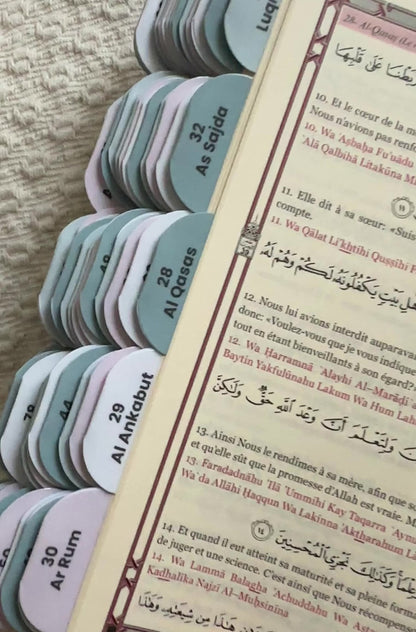 Luq
32
As Sajda
28
Al Qasas
29
Al Ankabut
30
Ar Rum
44
28. Al-Qasas
عَلَىٰ قَلْبِهَا
10. Et le cœur de la
Nous n'avions pas renf
10. Wa 'Aṣbaḥa Fu'ādu
'Alá Qalbihā Litakūna M
11. Elle dit à sa sœur: «Suis
compte.
11. Wa Qālat Li'khtihi Quṣṣīhi F
بَيْتٍ يَكْفُلُونَهُ لَكُمْ وَهُمْ لَهُ
12. Nous lui avions interdit auparava
donc: «Voulez-vous que je vous indiqu
tout en étant bienveillants à son égard?
12. Wa Ḥarramnā 'Alayhi Al-Marāḍi
Baytin Yakfulūnahu Lakum Wa Hum Lahu
وَلِتَعْلَمَ أَنَّ وَعْدَ اللَّهِ حَقٌّ وَلَٰكِنَّ
13. Ainsi Nous le rendîmes à sa mère, afin que s
et qu'elle sût que la promesse d'Allah est vraie. M
13. Faradadnāhu 'Ilá 'Ummihi Kay Taqarra 'Aynu
Wa'da Allāhi Ḥaqqun Wa Lakinna 'Aktharahum L
وَكَذَٰلِكَ نَجْزِي الْمُحْسِنِينَ
14. Et quand il eut atteint sa maturité et sa pleine form
de juger et une science. C'est ainsi que Nous récompens
14. Wa Lammā Balagha 'Achuddahu Wa As
Kadhalika Najzī Al-Muḥsinīna
هَٰذَا مِن شِيعَتِهِ وَهَٰذَا